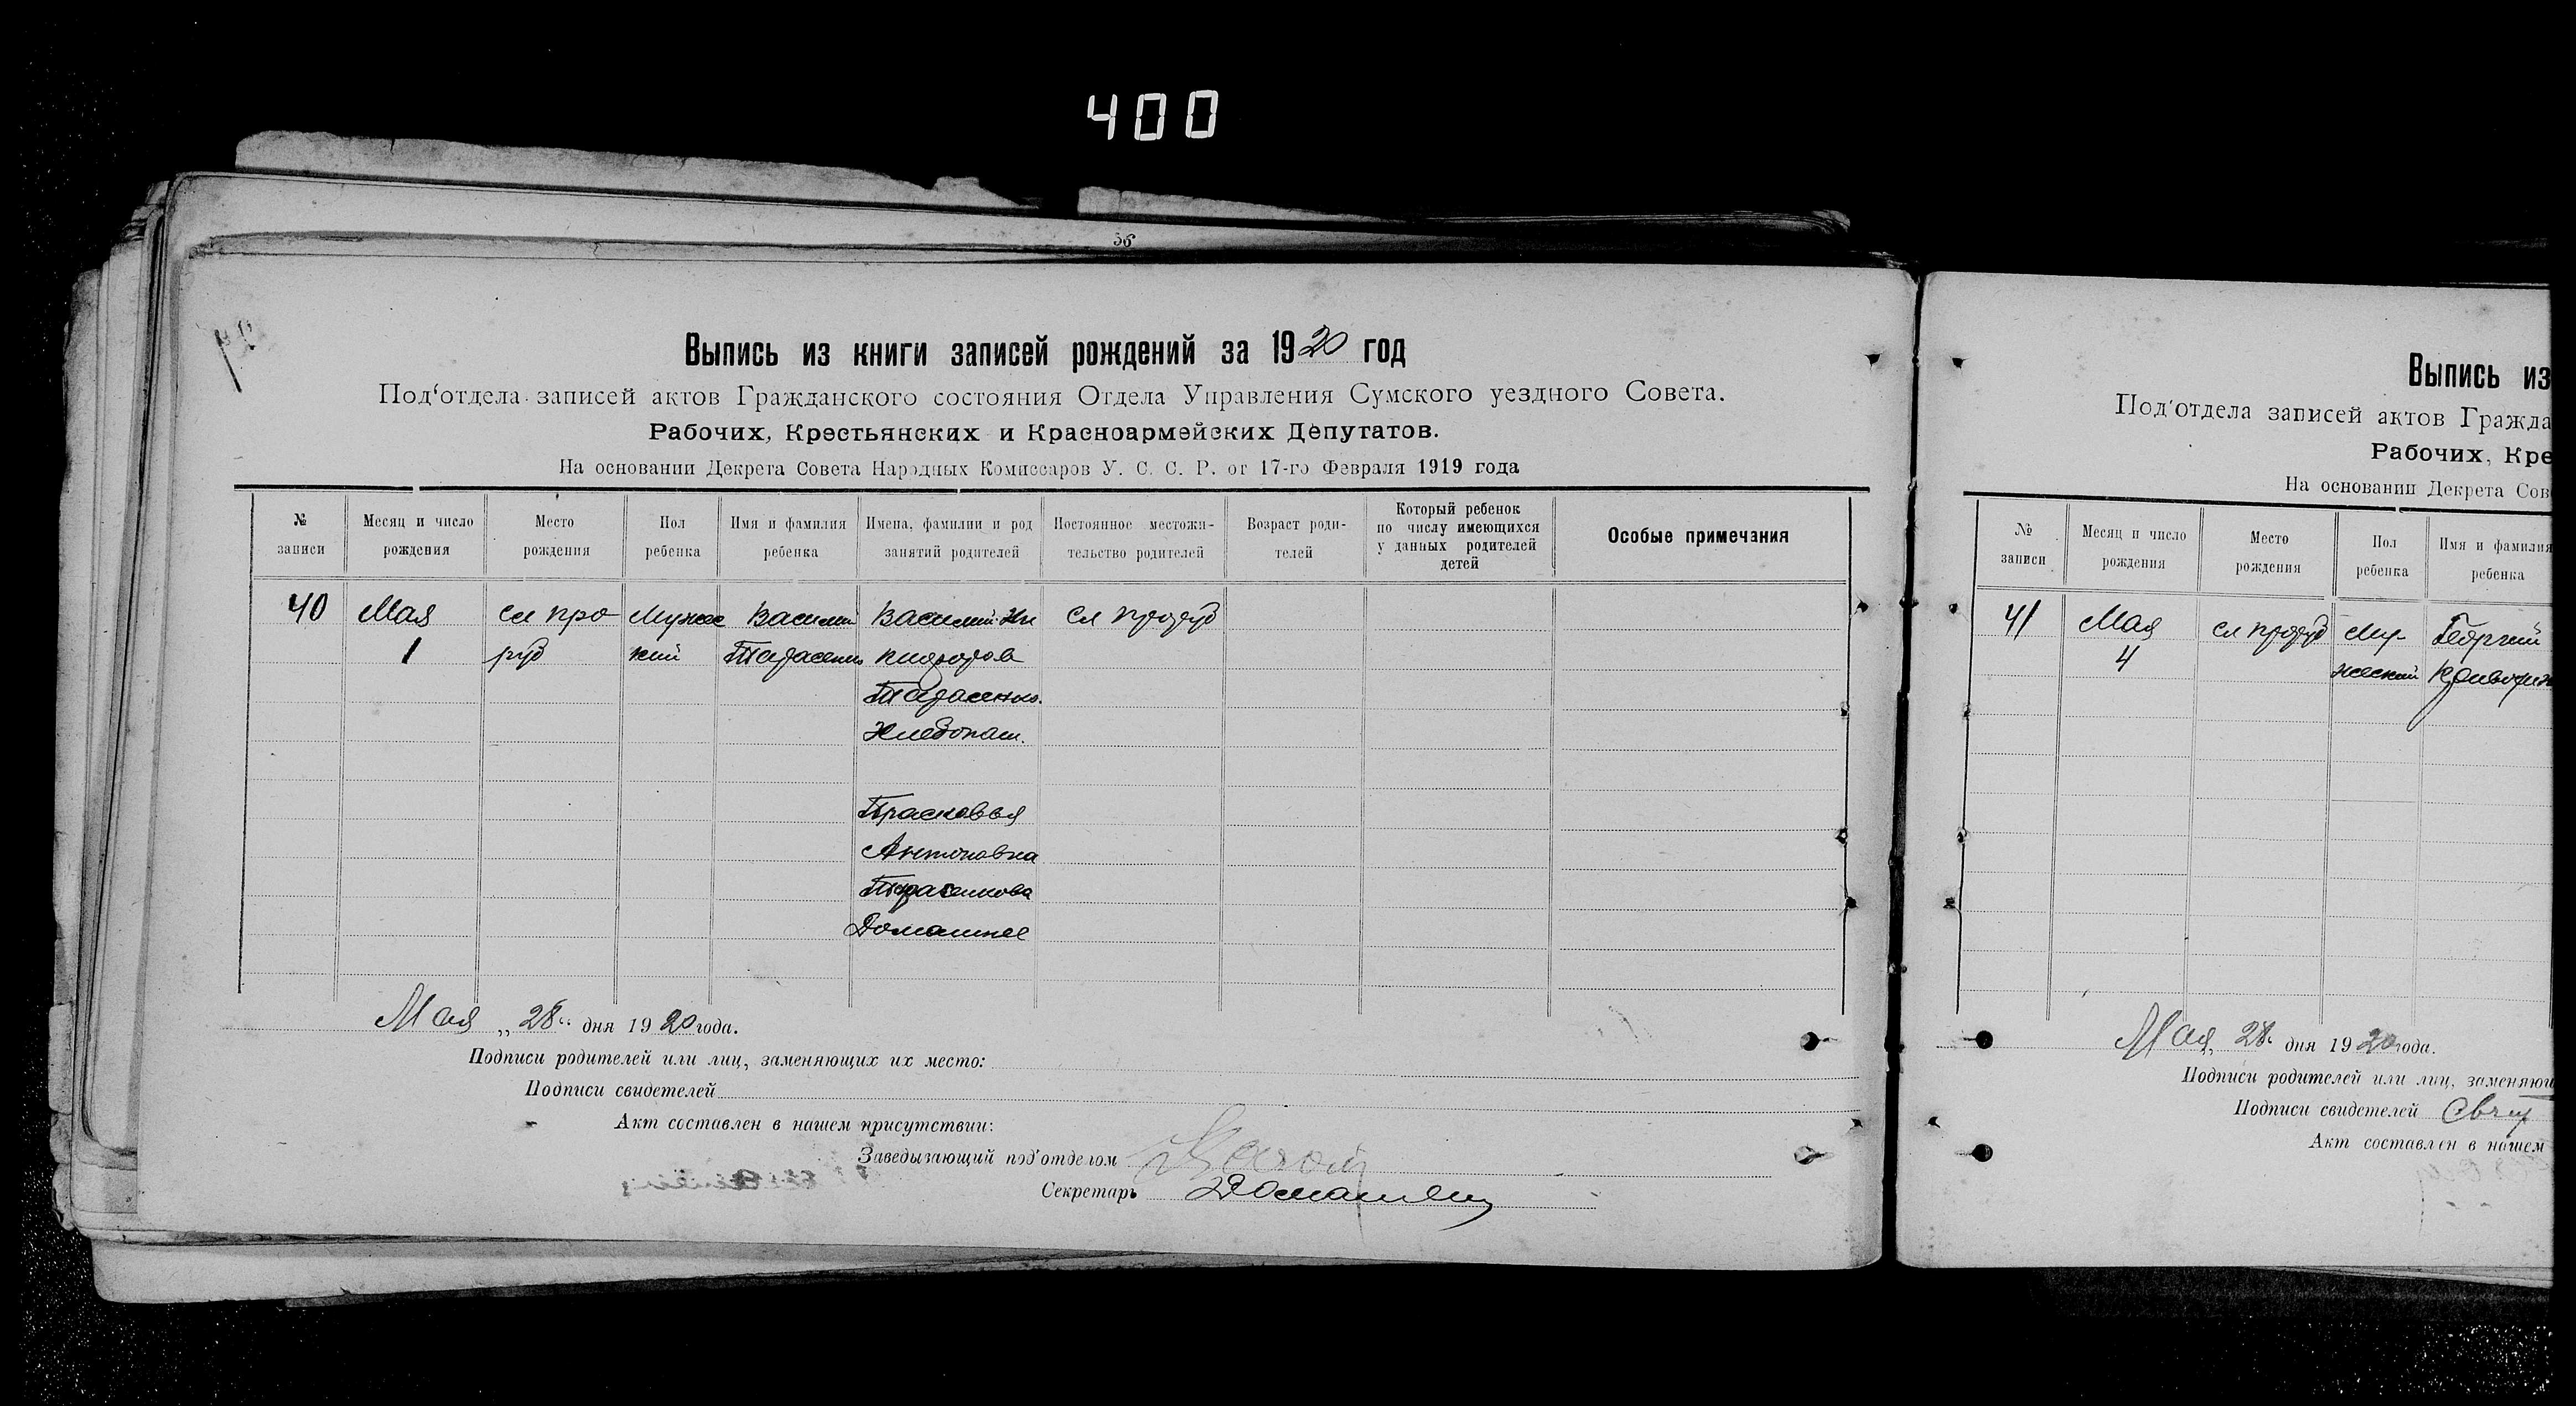 400
56
Выпись из книги записей рождений за 1920 год
Под'отдела записей актов Гражданского состояния Отдела Управления Сумского уездного Совета.
Рабочих, Крестьянских и Красноармейских Депутатов.
На основании Декрета Совета Народных Комиссаров У. С. С. Р. от 17-го Февраля 1919 года
№ записи
Месяц и число рождения
Место рождения
Пол ребенка
Имя и фамилия ребенка
Имена, фамилии и род занятий родителей
Постоянное местожительство родителей
Возраст родителей
Который ребенок по числу имеющихся у данных родителей детей
Особые примечания
40
Мая
1
сл про
руб
Мужес
кий
Василий
Тарасенко
Василий Ни
кифоров
Тарасенко.
Хлебопаш.
Прасковья
Антоновна
Тарасенкова
Домашнее
сл проруб
Мая „28“ дня 1920 года.
Подписи родителей или лиц, заменяющих их место:
Подписи свидетелей
Акт составлен в нашем присутствии:
Заведызающий под'отделом
Секретарь
Выпись из
Под'отдела записей актов Гражда
Рабочих, Кре
На основании Декрета Сов
№ записи
Месяц и число рождения
Место рождения
Пол ребенка
Имя и фамилия ребенка
41
Мая
4
сл проруб
Му-
жеский
Георгий
Мая 28 дня 1920 года.
Подписи родителей или лиц, заменяющ
Подписи свидетелей
Акт составлен в нашем